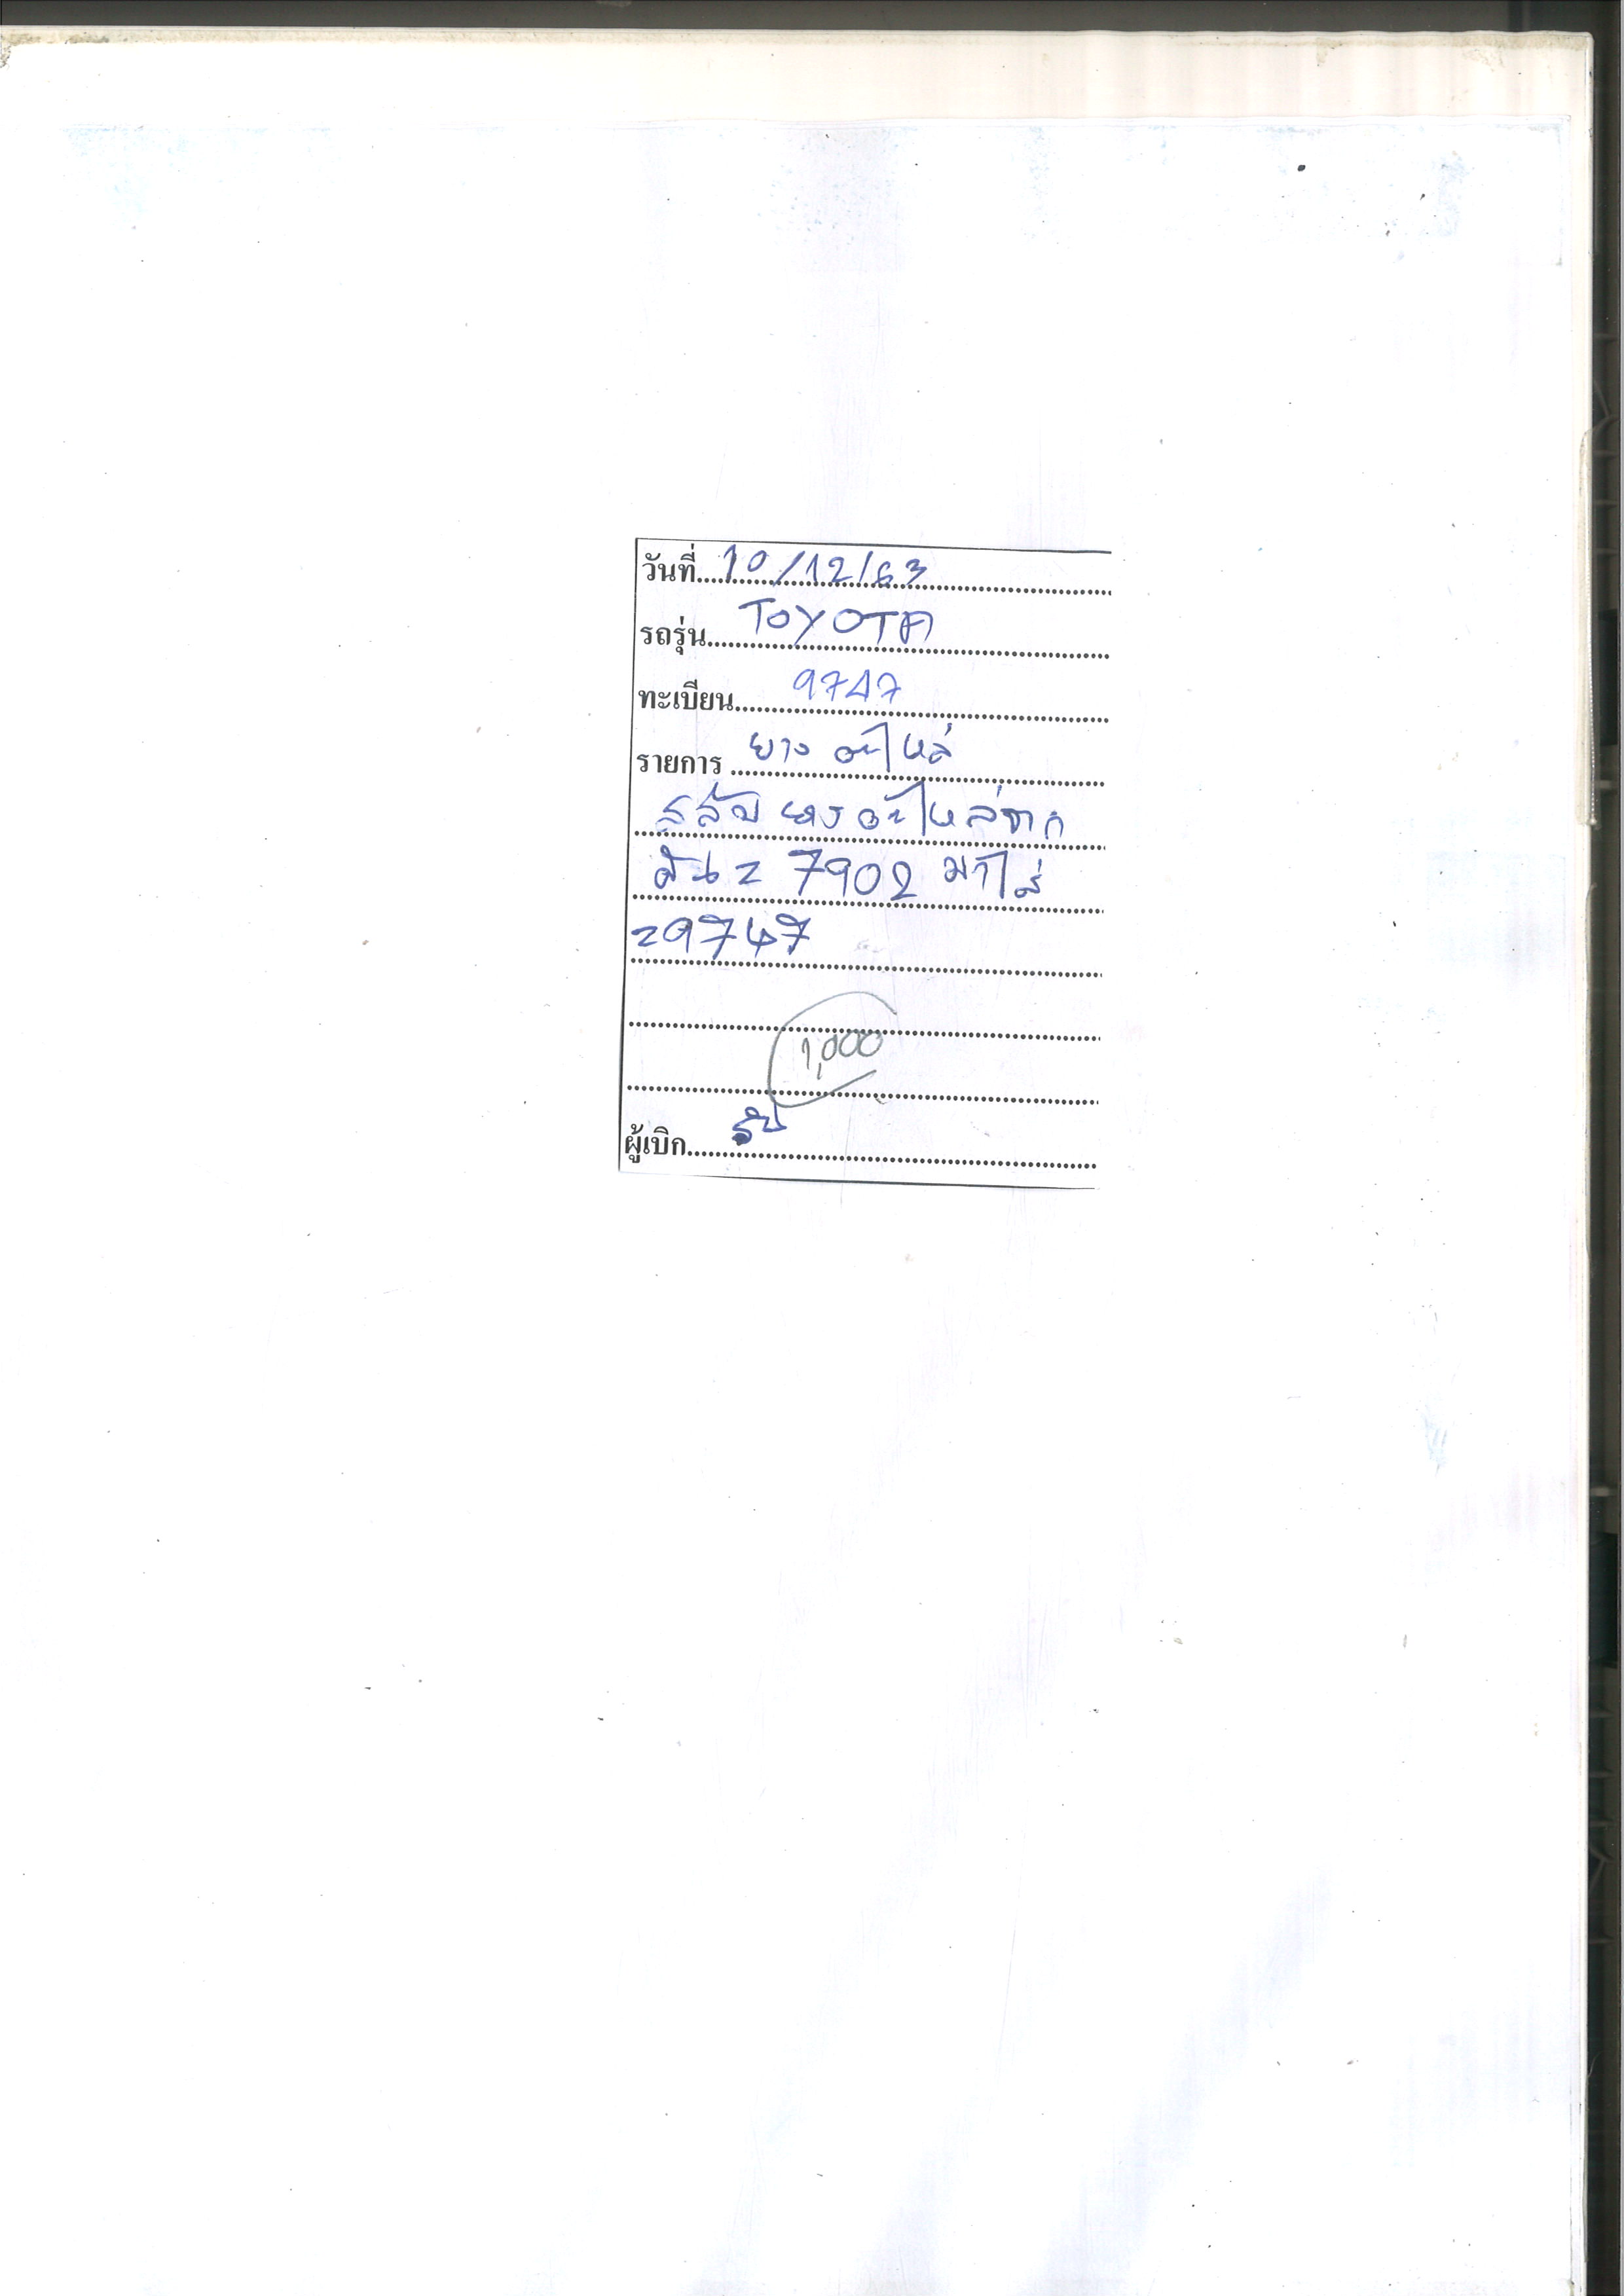 วันที่ 10/12/63
รถรุ่น TOYOTA
ทะเบียน 9747
รายการ ยางอะไหล่
สลับยางอะไหล่จาก
คัน = 7902 มาใส่
=9747
1,000
ผู้เบิก